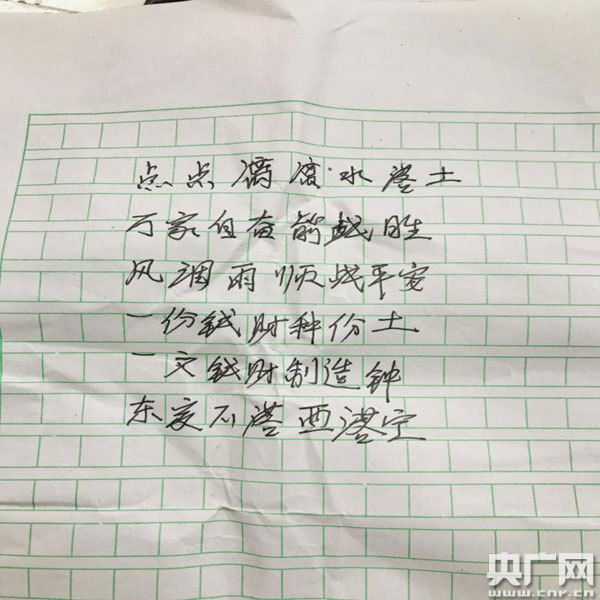 点点滴滴水落土
万家自奋前战胜
风调雨顺战平安
一份钱财种份土
一文钱财制造钟
东庭石塔西塔宝
央广网
www.cnr.cn